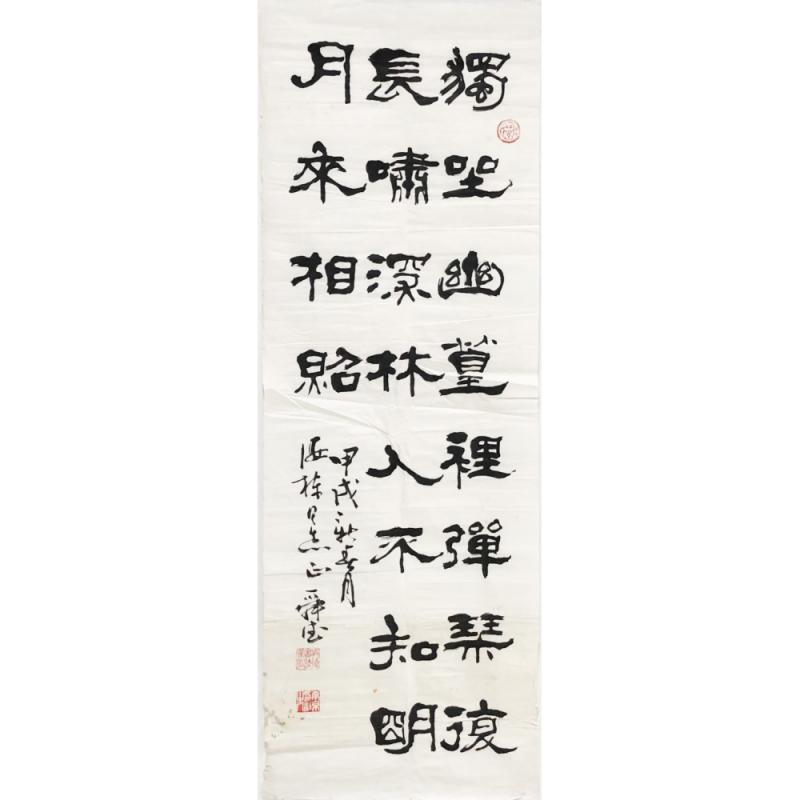 獨坐幽篁裡彈琴復
長嘯深林人不知明
月來相照
甲戌 月
棟同志正 舜